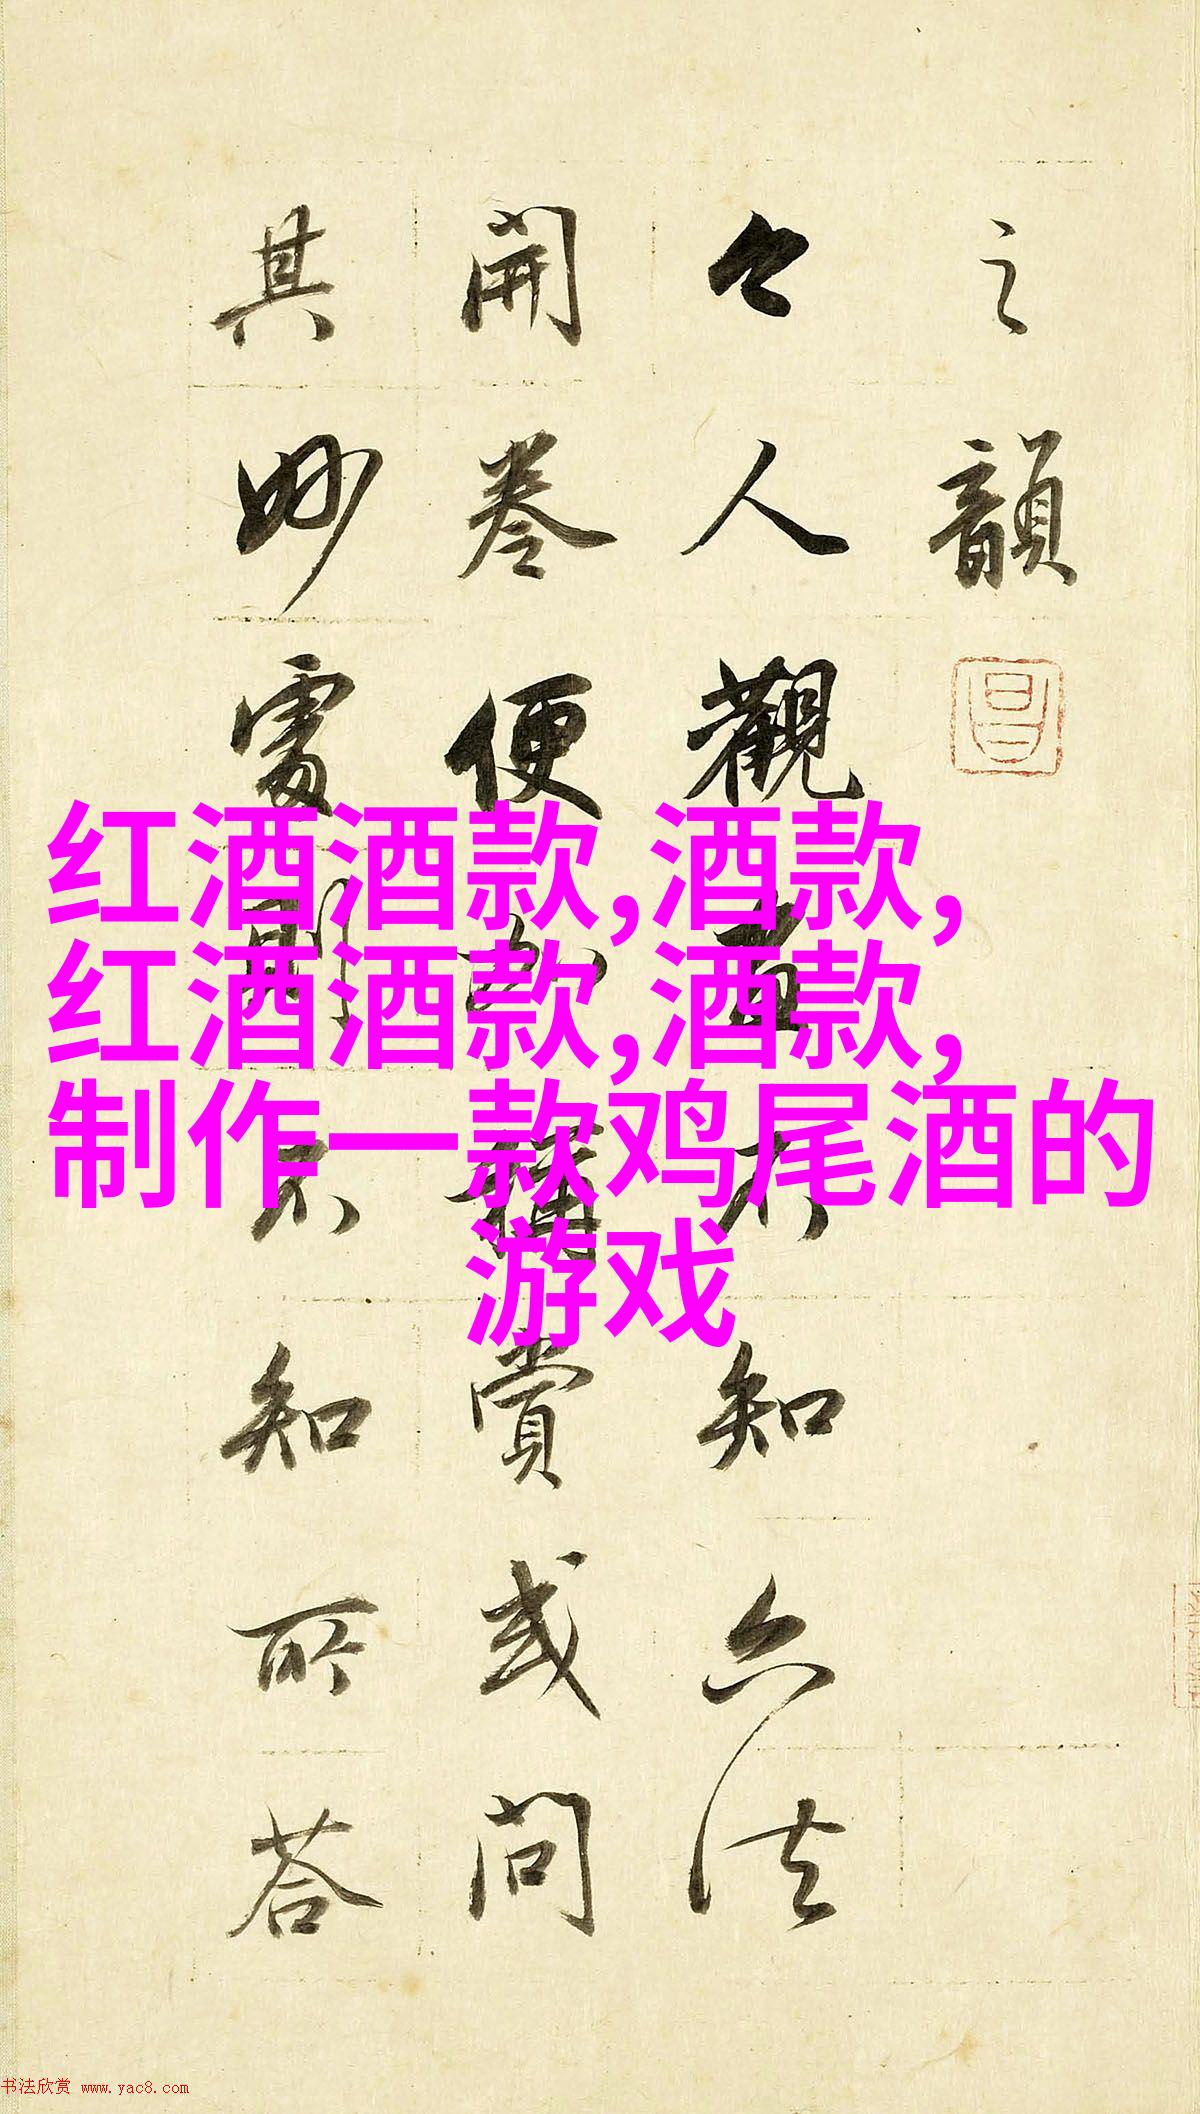 之韻
今人觀畫不知六法
開卷便加稱賞或問
其妙處則不知所荅
红酒酒款,酒款,
红酒酒款,酒款,
制作一款鸡尾酒的
游戏
书法欣赏 www.yac8.com